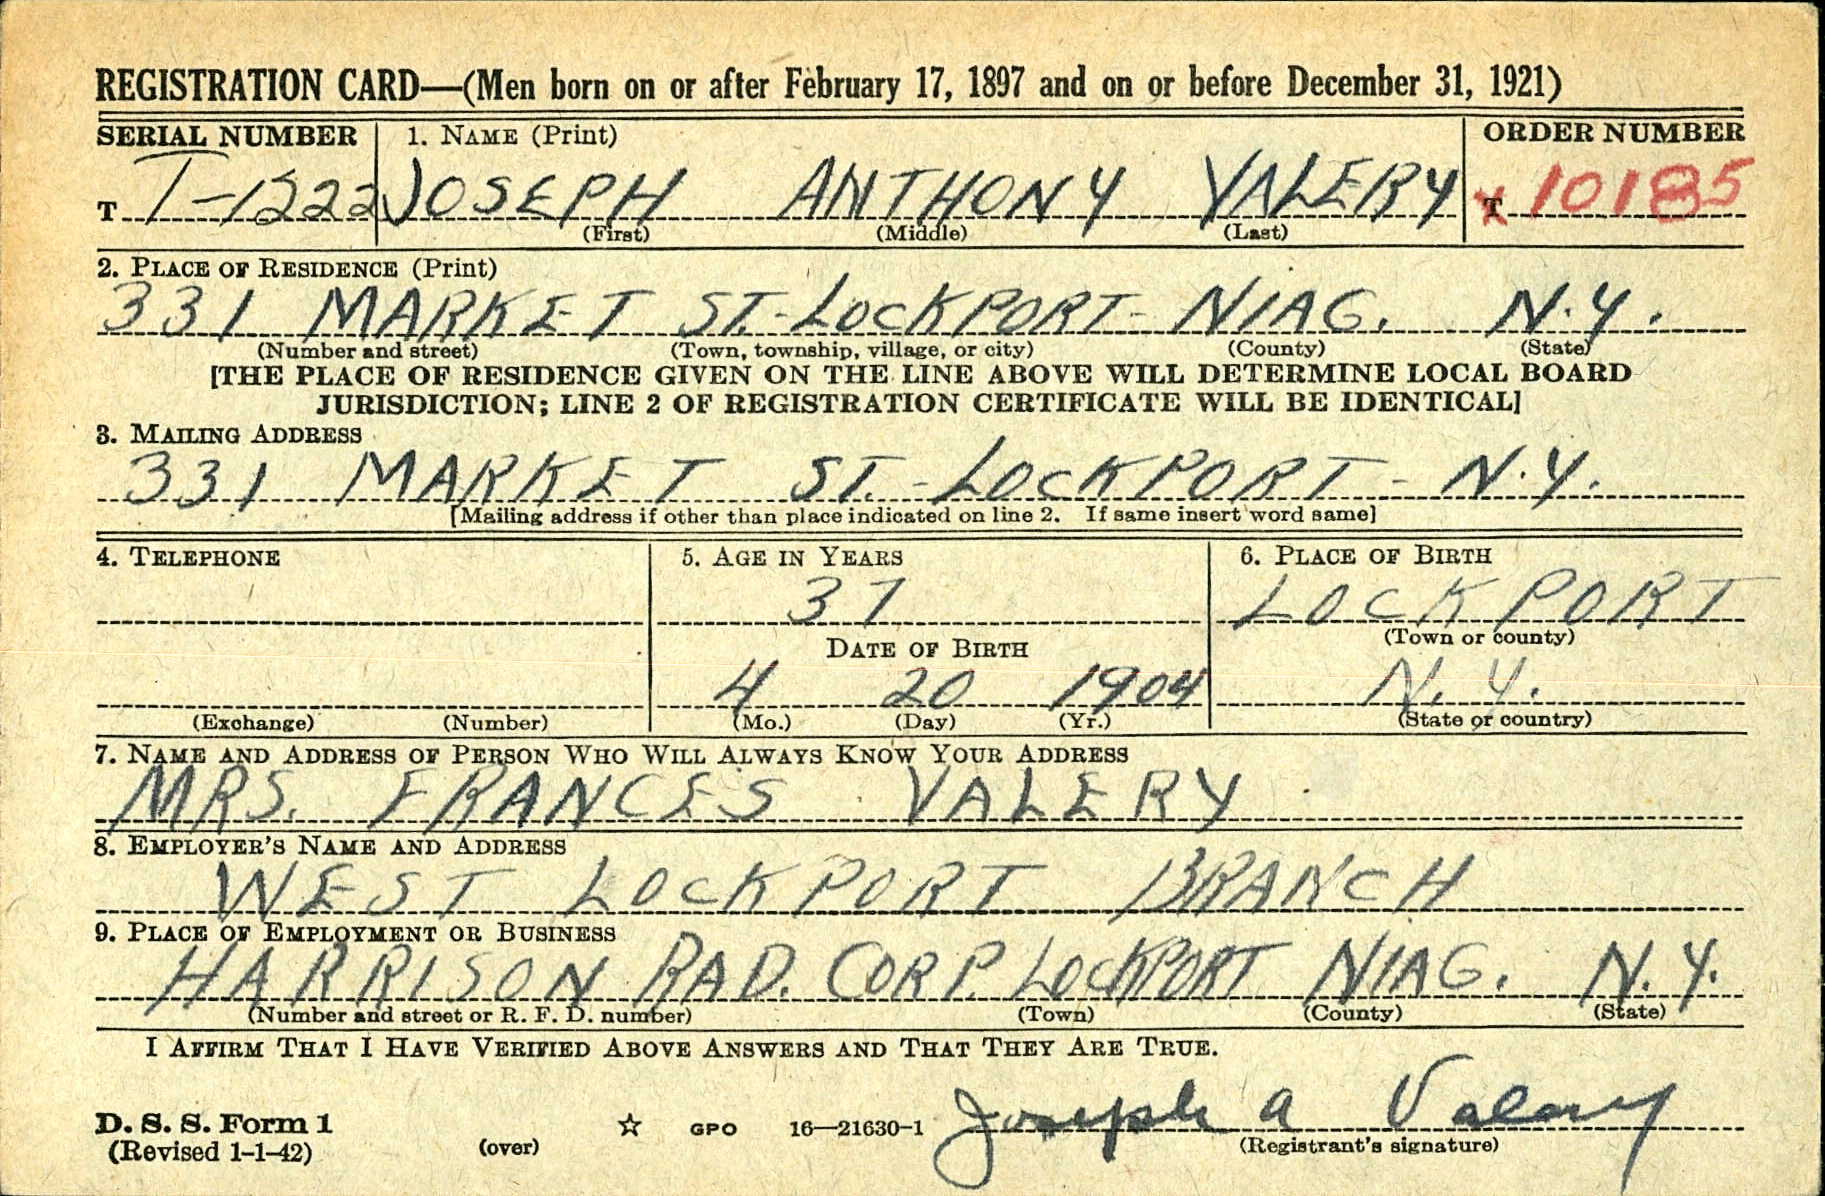 REGISTRATION CARD—(Men born on or after February 17, 1897 and on or before December 31, 1921)
SERIAL NUMBER 1. NAME (Print) ORDER NUMBER
T T-1222 JOSEPH ANTHONY VALERY T 10185
(First) (Middle) (Last)
2. PLACE OF RESIDENCE (Print)
331 MARKET ST.-LOCKPORT- NIAG. N.Y.
(Number and street) (Town, township, village, or city) (County) (State)
[THE PLACE OF RESIDENCE GIVEN ON THE LINE ABOVE WILL DETERMINE LOCAL BOARD
JURISDICTION; LINE 2 OF REGISTRATION CERTIFICATE WILL BE IDENTICAL]
3. MAILING ADDRESS
331 MARKET ST.-LOCKPORT-N.Y.
[Mailing address if other than place indicated on line 2. If same insert word same]
4. TELEPHONE 5. AGE IN YEARS 6. PLACE OF BIRTH
37 LOCKPORT
DATE OF BIRTH (Town or county)
4 20 1904 N.Y.
(Exchange) (Number) (Mo.) (Day) (Yr.) (State or country)
7. NAME AND ADDRESS OF PERSON WHO WILL ALWAYS KNOW YOUR ADDRESS
MRS. FRANCES VALERY
8. EMPLOYER'S NAME AND ADDRESS
WEST LOCKPORT BRANCH
9. PLACE OF EMPLOYMENT OR BUSINESS
HARRISON RAD. CORP. LOCKPORT NIAG. N.Y.
(Number and street or R. F. D. number) (Town) (County) (State)
I AFFIRM THAT I HAVE VERIFIED ABOVE ANSWERS AND THAT THEY ARE TRUE.
D. S. S. Form 1 ☆ GPO 16—21630-1 Joseph A Valery
(Revised 1-1-42) (over) (Registrant's signature)